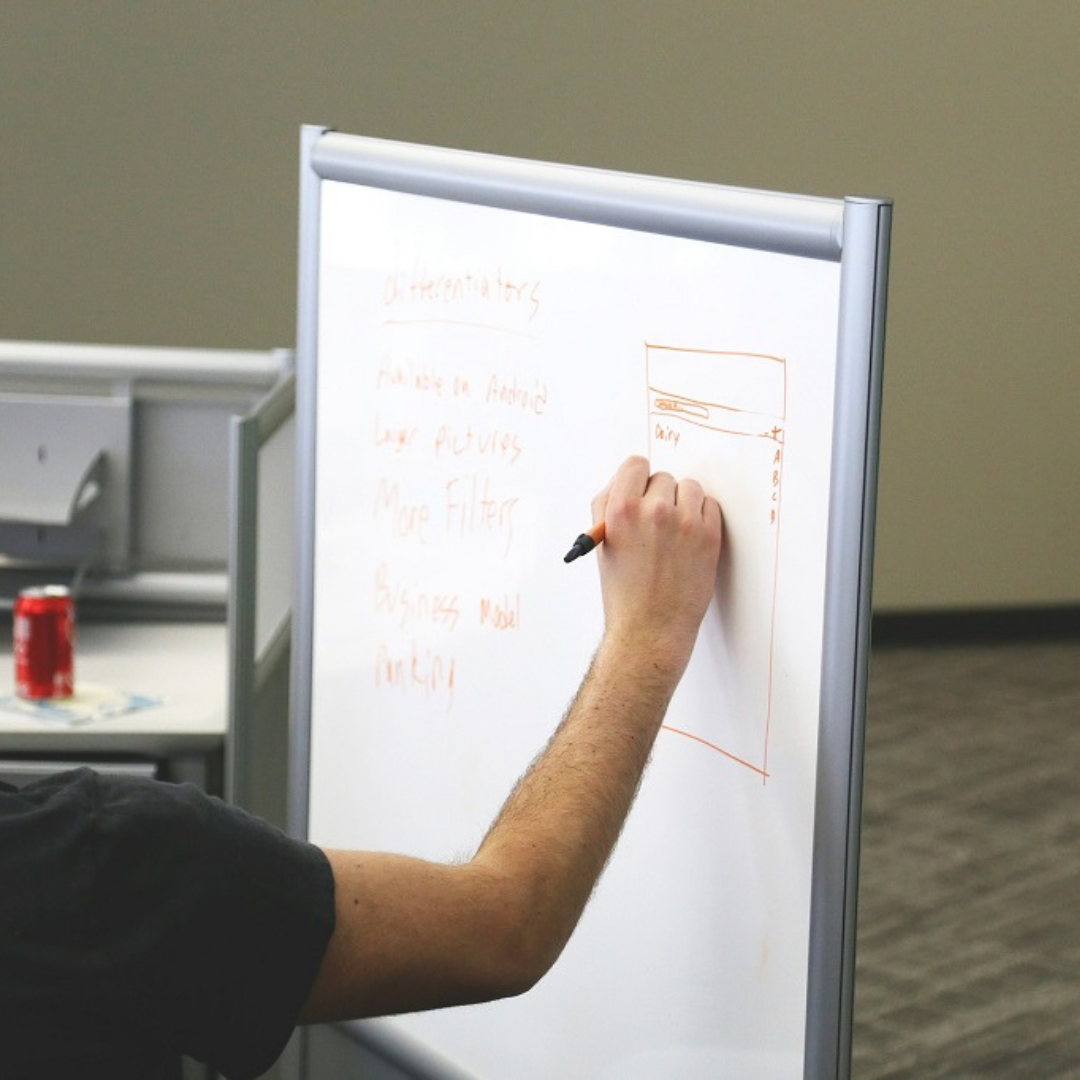 differentiators
Available on Android
Larger pictures
More Filters
Business model
Ranking
Dairy
+
A
B
C
D